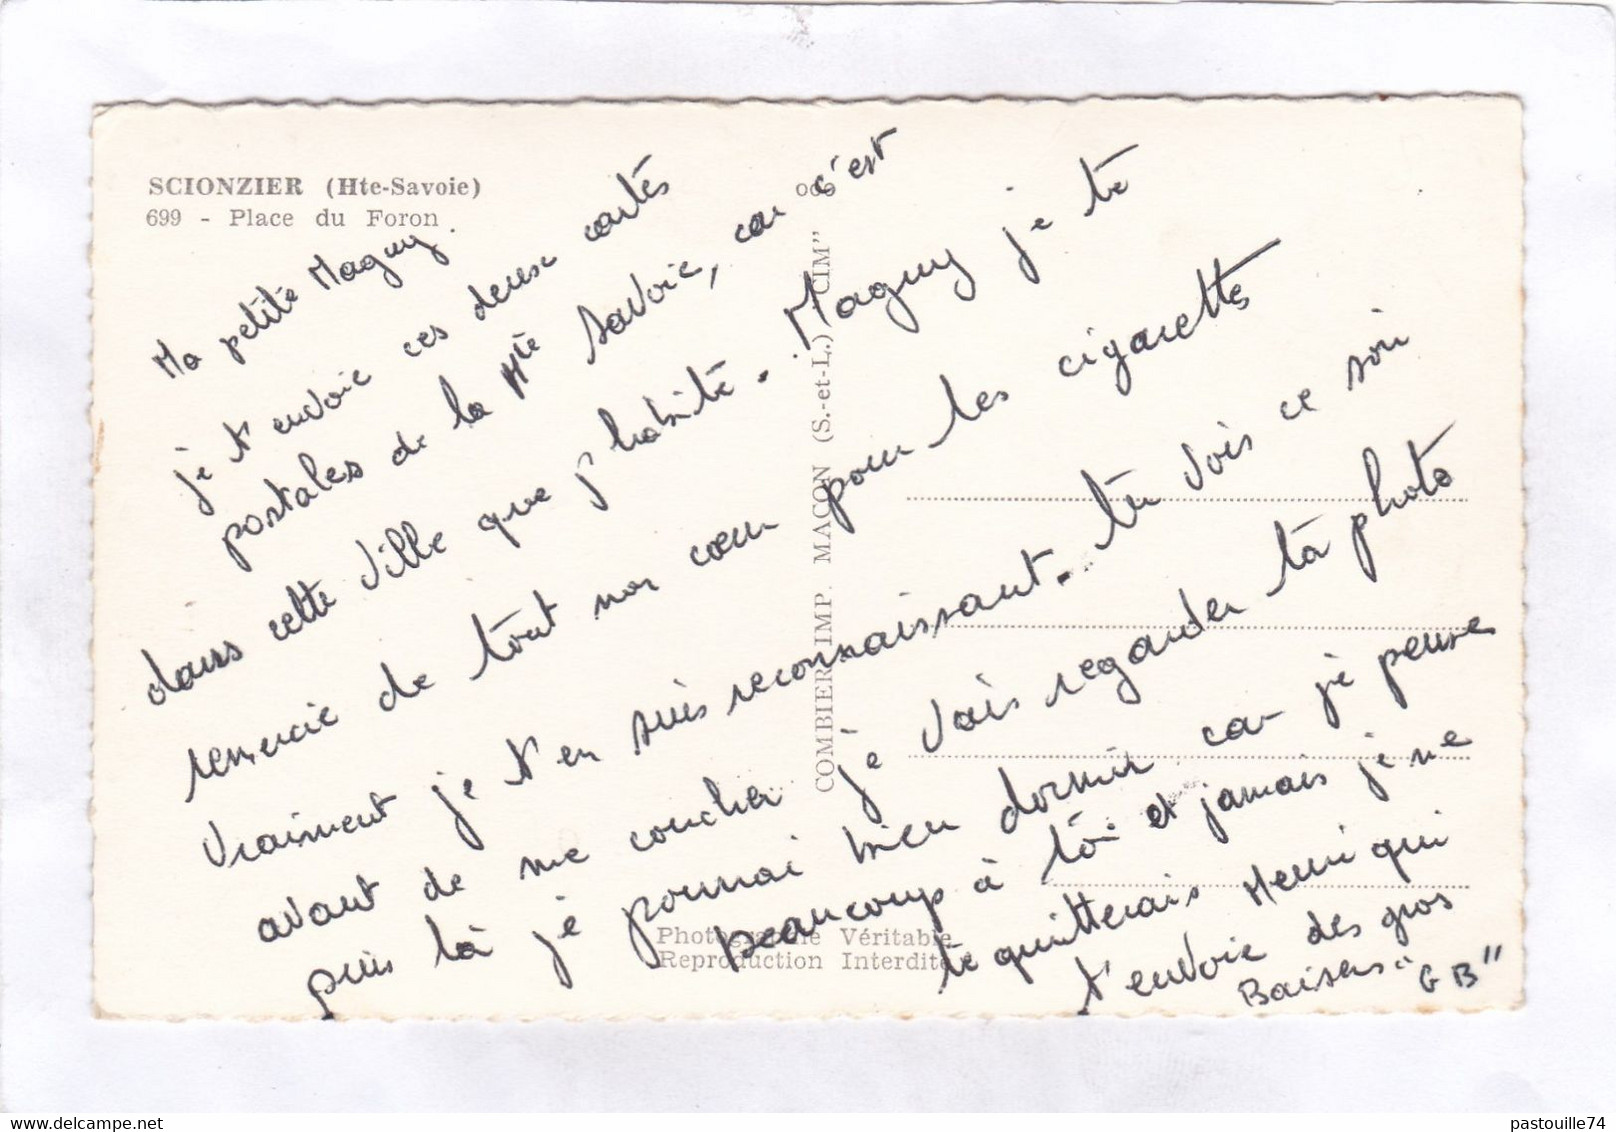 SCIONZIER (Hte-Savoie)
699 - Place du Foron
Ma petite Maguy.
je t'envoie ces deux cartes
postales de la Hte Savoie, car c'est
dans cette ville que j'habite. Maguy je te
remercie de tout mon cœur pour les cigarettes
Vraiment je t'en suis reconnaissant. tu vois ce soir
avant de me coucher je vais regarder ta photo
puis là je pourrai bien dormir car je pense
beaucoup à toi et jamais je ne
te quitterais Henri qui
t'envoie des gros
Baisers "GB"
COMBIER IMP. MACON (S.-et-L.) "CIM"
Photographie Véritable
Reproduction Interdite
pastouille74